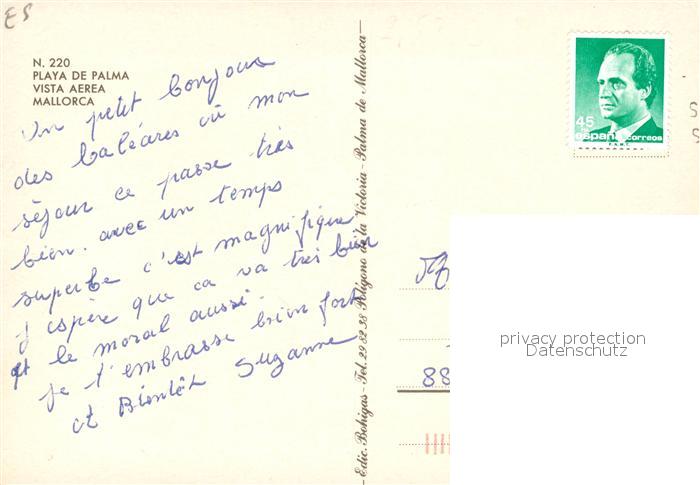 ES
N. 220
PLAYA DE PALMA
VISTA AEREA
MALLORCA
Un petit bonjour
des baléares où mon
séjour ce passe très
bien. avec un temps
superbe c'est magnifique
j'espère que ca va très bien
et le moral aussi.
je t'embrasse bien fort
et Bientôt Suzanne
Edic. Bohigas - Tel. 29 82 38 Polígono de la Victoria - Palma de Mallorca
45
españa correos
F.N.M.T.
88
privacy protection
Datenschutz